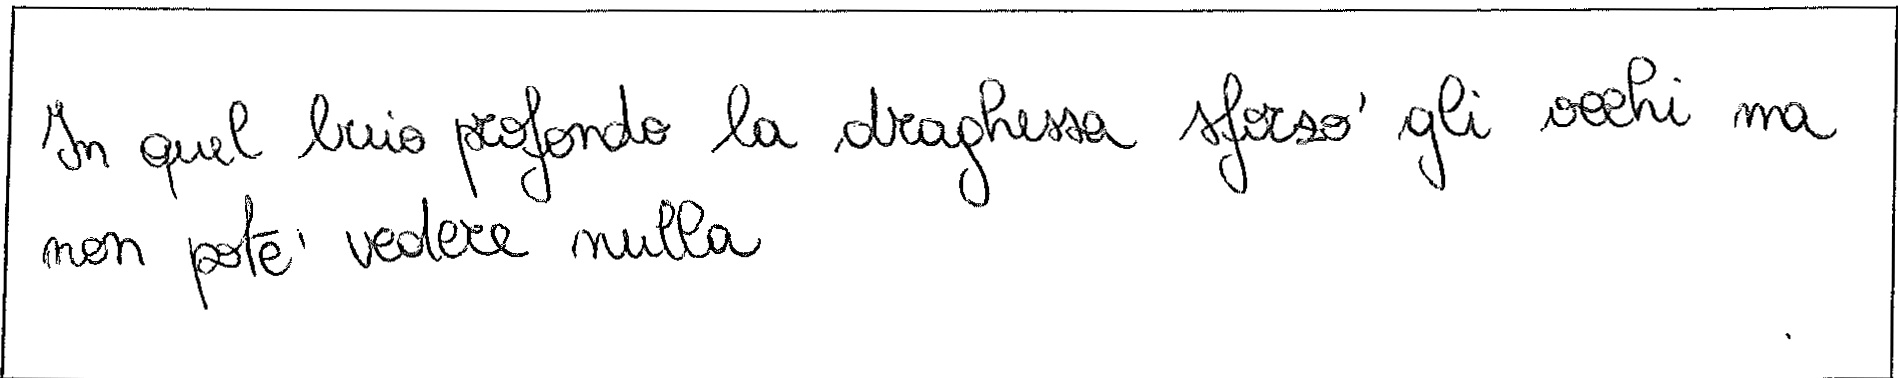 In quel buio profondo la draghessa sforzo' gli occhi ma
non pote' vedere nulla